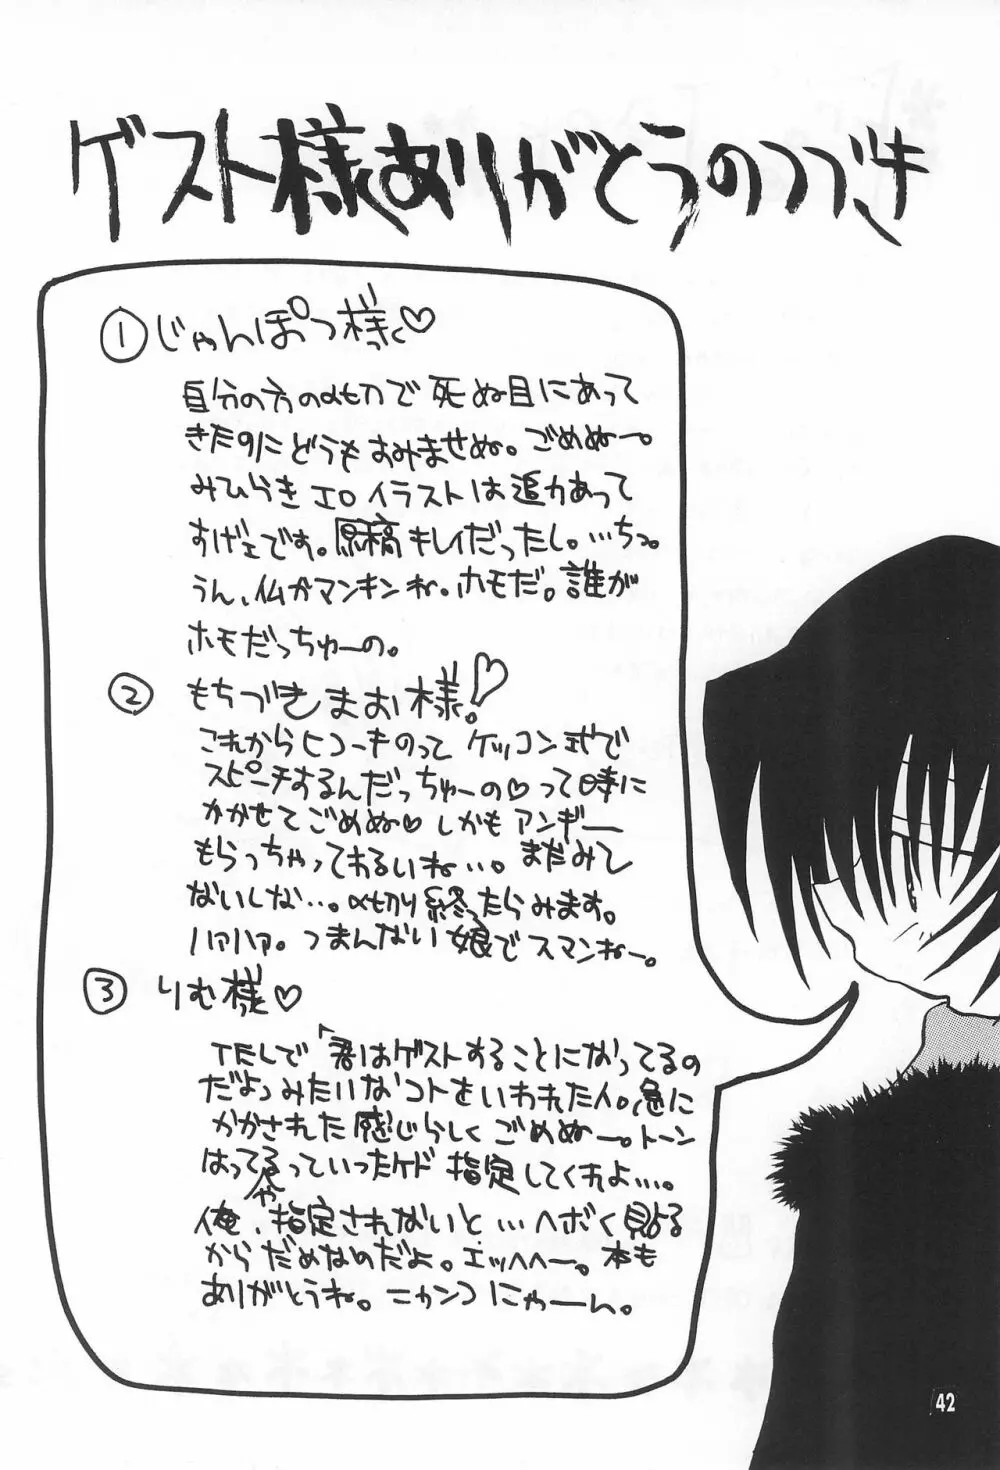 ゲスト様ありがとうのつづき
①じゃんぽつ様♡
自分の方の〆切で死ぬ目にあって
きたのにどうもすみませぬ。ごめぬー。
みひらきエロイラストは迫力あって
すげェです。原稿キレイだったし。…ちっ。
うん、仏かマンキンね。ホモだ。誰が
ホモだっちゅーの。
② もちづきまお様!♡
これからヒコーキのって ケッコン式で
スピーチするんだっちゅーの♡って時に
かかせてごめぬ♡しかもアンギー
もらっちゃってわるいね…。まだみて
ないしな…。〆切り終ったらみます。
ハァハァ。つまんない娘でスマンねー。
③ りむ様♡
TELで「君はゲストすることになってるの
だよ」みたいなコトをいわれた人。急に
かかされた感じらしくごめぬー。トーン
はってるっていったケド指定してくれよ…。
や、
俺、指定されないと…ヘボく貼る
からだめなのだよ。エッヘヘー。本も
ありがとうね。ニャンコにゃーん。
42